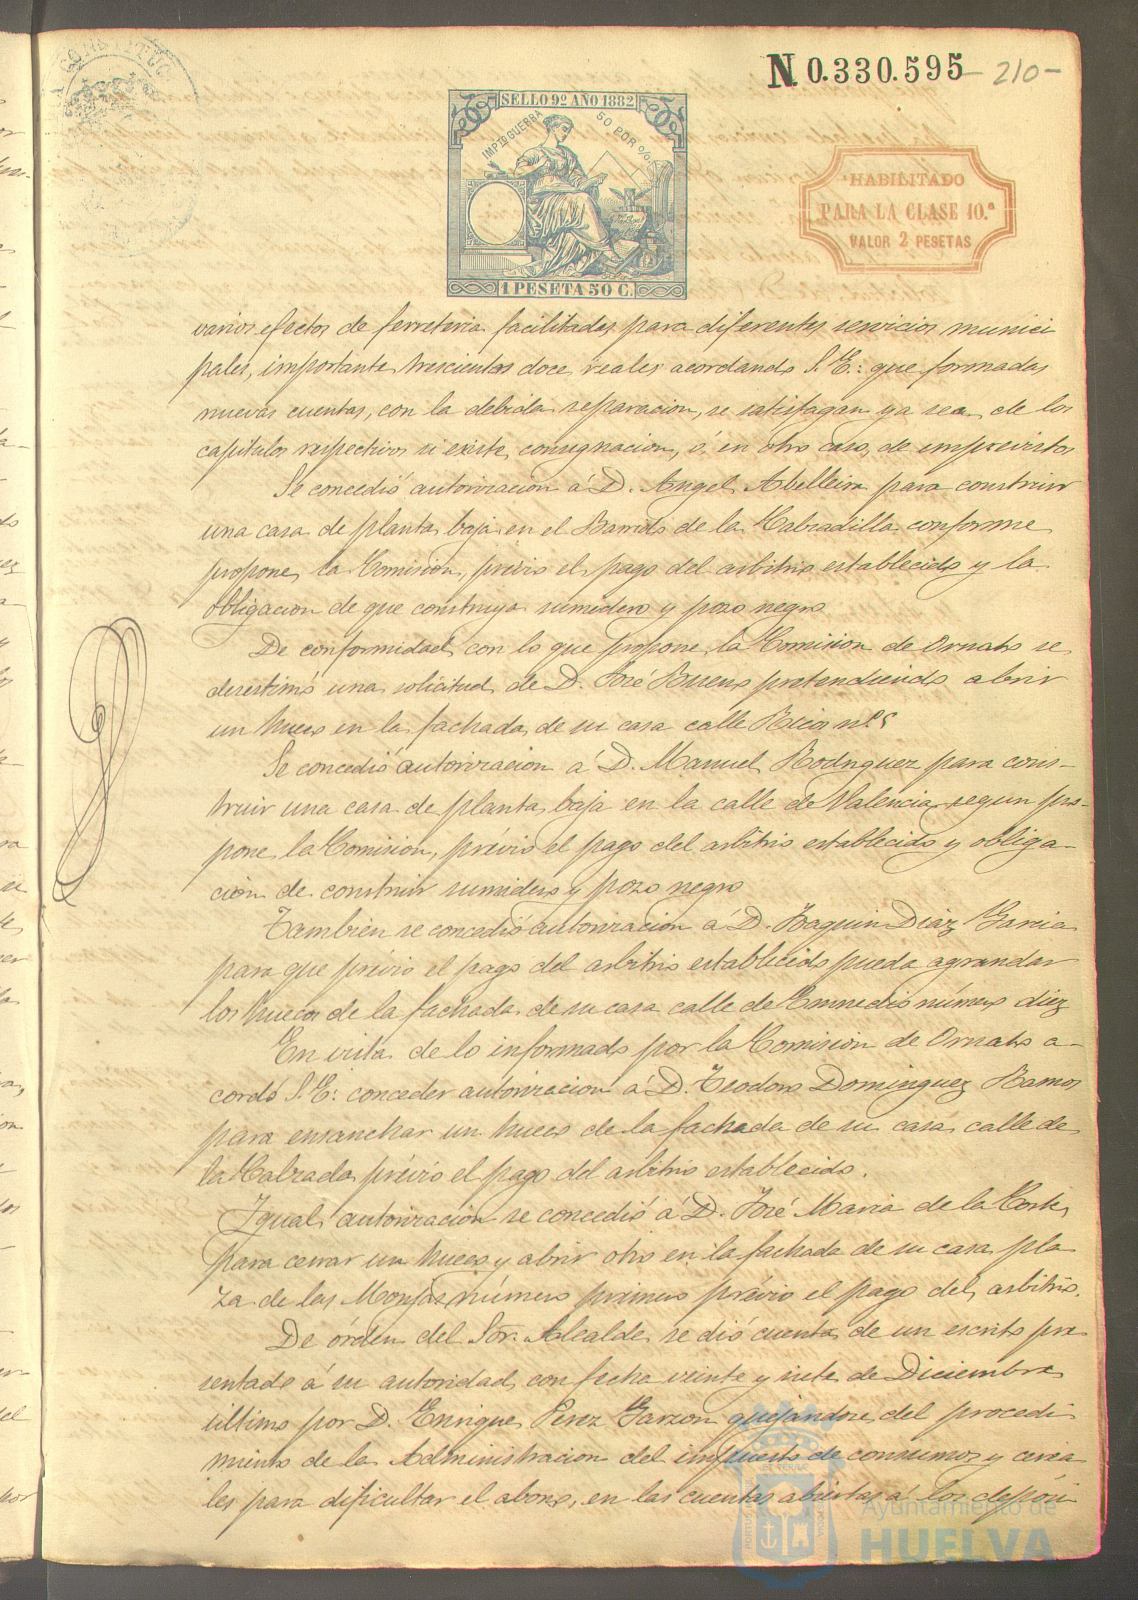 N 0.330.595 - 210 -
SELLO 9º AÑO 1882
IMPTO GUERRA 50 POR %
1 PESETA 50 C.
HABILITADO
PARA LA CLASE 10.ª
VALOR 2 PESETAS
varios efectos de ferreteria facilitados para diferentes servicios munici
pales, importante trescientos doce reales acordando S. E: que formadas
nuevas cuentas, con la debida separacion, se satisfagan ya sea de los
capitulos respectivos si existe consignacion, ó en otro caso, de imprevistos
Se concedió autorizacion á D. Angel Abelleira para construir
una casa de planta baja en el Barrio de la Calzadilla conforme
propone la Comision, prévio el pago del arbitrio establecido y la
obligacion de que construya sumidero y pozo negro
De conformidad con lo que propone la Comision de Ornato se
desestimó una solicitud de D. José Bueno pretendiendo abrir
un hueco en la fachada de su casa calle Rico nº 5
Se concedió autorizacion á D. Manuel Rodriguez para cons-
truir una casa de planta baja en la calle de Valencia segun pro-
pone la Comision, prévio el pago del arbitrio establecido y obliga-
cion de construir sumidero y pozo negro
Tambien se concedió autorizacion á D. Joaquin Diaz Garcia
para que prévio el pago del arbitrio establecido pueda agrandar
los huecos de la fachada de su casa calle de Enmedio número diez
En vista de lo informado por la Comision de Ornato a-
cordó S. E: conceder autorizacion á D. Teodoro Dominguez Ramos
para ensanchar un hueco de la fachada de su casa calle de
la Calzada prévio el pago del arbitrio establecido.
Igual autorizacion se concedió á D. José Maria de la Corte
para cerrar un hueco y abrir otro en la fachada de su casa pla
za de las Monjas número primero prévio el pago del arbitrio.
De órden del Sor. Alcalde se dió cuenta de un escrito pre
sentado á su autoridad con fecha veinte y siete de Diciembre
último por D. Enrique Perez Garzon quejándose del procedi
miento de la Administracion del impuesto de consumos y cerea
les para dificultar el abono, en las cuentas abiertas á los depósi
Ayuntamiento de
HUELVA